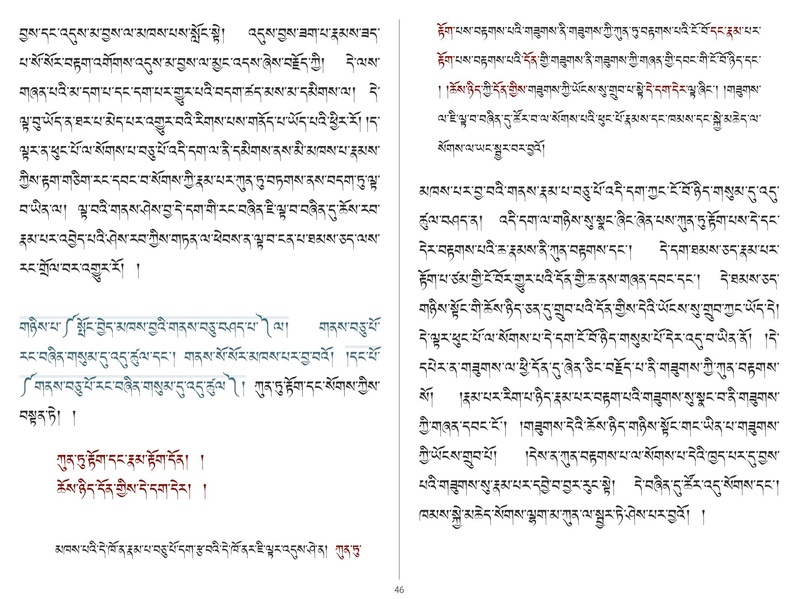 བྱས་དང་འདུས་མ་བྱས་ལ་མཁས་པས་སློང་སྟེ། འདུས་བྱས་ཟག་པ་རྣམས་ཟད་
པ་སོ་སོར་བརྟག་འགོགས་འདུས་མ་བྱས་ལ་མྱང་འདས་ཞེས་བརྗོད་ཀྱི། དེ་ལས་
གཞན་པའི་མ་དག་པ་དང་དག་པར་གྱུར་པའི་བདག་ཚད་མས་མ་དམིགས་ལ། དེ་
ལྟ་བུ་ཡོད་ན་ཐར་པ་མེད་པར་འགྱུར་བའི་རིགས་པས་གནོད་པ་ཡོད་པའི་ཕྱིར་རོ། །ད་
ལྟར་ན་ཕུང་པོ་ལ་སོགས་པ་བཅུ་པོ་འདི་དག་ལ་ནི་དམིགས་ནས་མི་མཁས་པ་རྣམས་
ཀྱིས་རྟག་གཅིག་རང་དབང་བ་སོགས་ཀྱི་རྣམ་པར་ཀུན་ཏུ་བཏགས་ནས་བདག་ཏུ་ལྟ་
བ་ཡིན་ལ། ལྟ་བའི་གནས་ཤེས་བྱ་དེ་དག་གི་རང་བཞིན་ཇི་ལྟ་བ་བཞིན་དུ་ཆོས་རབ་
རྣམ་པར་འབྱེད་པའི་ཤེས་རབ་ཀྱིས་གཏན་ལ་ཕེབས་ན་ལྟ་བ་ངན་པ་ཐམས་ཅད་ལས་
རང་གྲོལ་བར་འགྱུར་རོ། །
གཉིས་པ་༼སློང་བྱེད་མཁས་བྱའི་གནས་བཅུ་བཤད་པ་༽ལ། གནས་བཅུ་པོ་
རང་བཞིན་གསུམ་དུ་འདུ་ཚུལ་དང་། གནས་སོ་སོར་མཁས་པར་བྱ་བའོ། །དང་པོ་
༼གནས་བཅུ་པོ་རང་བཞིན་གསུམ་དུ་འདུ་ཚུལ་༽། ཀུན་ཏུ་རྟོག་དང་སོགས་ཀྱིས་
བསྟན་ཏེ། །
ཀུན་ཏུ་རྟོག་དང་རྣམ་རྟོག་དོན། །
ཆོས་ཉིད་དོན་གྱིས་དེ་དག་དེར། །
མཁས་པའི་དེ་ཁོ་ན་རྣམ་པ་བཅུ་པོ་དག་རྩ་བའི་དེ་ཁོ་ནར་ཇི་ལྟར་འདུས་ཤེ་ན། ཀུན་ཏུ་
རྟོག་པས་བརྟགས་པའི་གཟུགས་ནི་གཟུགས་ཀྱི་ཀུན་ཏུ་བརྟགས་པའི་ངོ་བོ་དང་རྣམ་པར་
རྟོག་པས་བརྟགས་པའི་དོན་གྱི་གཟུགས་ནི་གཟུགས་ཀྱི་གཞན་གྱི་དབང་གི་ངོ་བོ་ཉིད་དང་
། །ཆོས་ཉིད་ཀྱི་དོན་གྱིས་གཟུགས་ཀྱི་ཡོངས་སུ་གྲུབ་པ་སྟེ་དེ་དག་དེར་ལྟ་ཞིང་། །གཟུགས་
ལ་ཇི་ལྟ་བ་བཞིན་དུ་ཚོར་བ་ལ་སོགས་པའི་ཕུང་པོ་རྣམས་དང་ཁམས་དང་སྐྱེ་མཆེད་ལ་
སོགས་ལ་ཡང་སྦྱར་བར་བྱའོ།
མཁས་པར་བྱ་བའི་གནས་རྣམ་པ་བཅུ་པོ་འདི་དག་ཀྱང་ངོ་བོ་ཉིད་གསུམ་དུ་འདུ་
ཚུལ་བཤད་ན། འདི་དག་ལ་གཉིས་སུ་སྣང་ཞིང་ཞེན་པས་ཀུན་ཏུ་རྟོག་པས་དེ་དང་
དེར་བརྟགས་པའི་ཆ་རྣམས་ནི་ཀུན་བརྟགས་དང་། དེ་དག་ཐམས་ཅད་རྣམ་པར་
རྟོག་པ་ཙམ་གྱི་ངོ་བོར་གྱུར་པའི་དོན་གྱི་ཆ་ནས་གཞན་དབང་དང་། དེ་ཐམས་ཅད་
གཉིས་སྟོང་གི་ཆོས་ཉིད་ཅན་དུ་གྲུབ་པའི་དོན་གྱིས་དེའི་ཡོངས་སུ་གྲུབ་ཀྱང་ཡོད་དེ།
དེ་ལྟར་ཕུང་པོ་ལ་སོགས་པ་དེ་དག་ངོ་བོ་ཉིད་གསུམ་པོ་དེར་འདུ་བ་ཡིན་ནོ། །དེ་
དཔེར་ན་གཟུགས་ལ་ཕྱི་དོན་དུ་ཞེན་ཅིང་བརྗོད་པ་ནི་གཟུགས་ཀྱི་ཀུན་བརྟགས་
སོ། །རྣམ་པར་རིག་པ་ཉིད་རྣམ་པར་བརྟག་པའི་གཟུགས་སུ་སྣང་བ་ནི་གཟུགས་
ཀྱི་གཞན་དབང་ངོ་། །གཟུགས་དེའི་ཆོས་ཉིད་གཉིས་སྟོང་གང་ཡིན་པ་གཟུགས་
ཀྱི་ཡོངས་གྲུབ་པོ། །དེས་ན་ཀུན་བརྟགས་པ་ལ་སོགས་པ་དེའི་ཁྱད་པར་དུ་བྱས་
པའི་གཟུགས་སུ་རྣམ་པར་དབྱེ་བ་བྱར་རུང་སྟེ། དེ་བཞིན་དུ་ཚོར་འདུ་སོགས་དང་།
ཁམས་སྐྱེ་མཆེད་སོགས་ལྷག་མ་ཀུན་ལ་སྦྱར་ཏེ་ཤེས་པར་བྱའོ། །
46